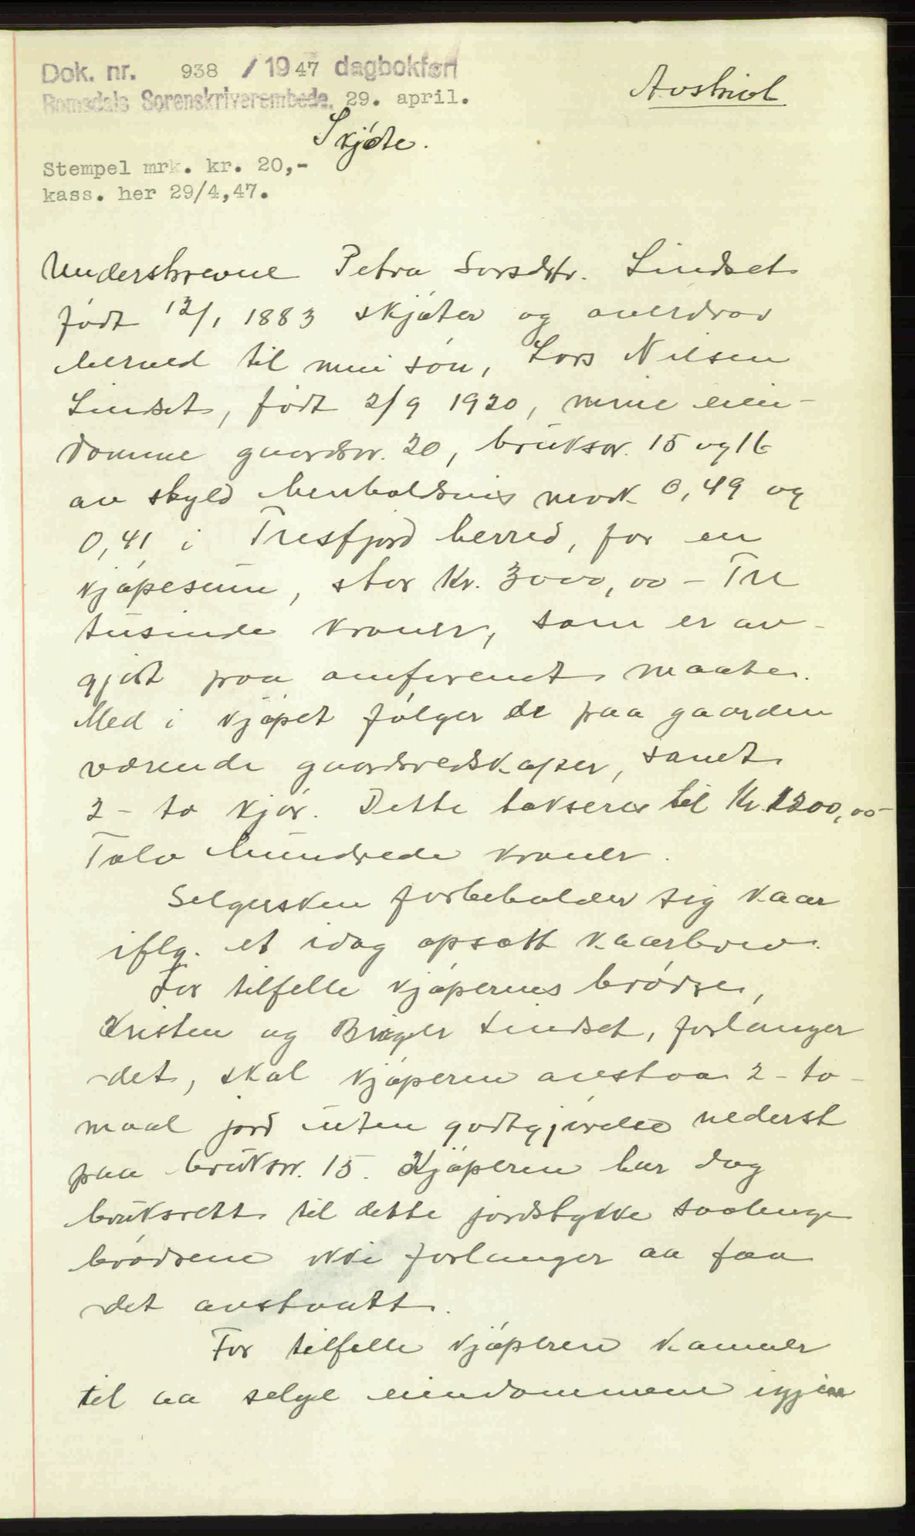 Dok. nr. 938 / 1947 dagbokført
Romsdals Sorenskriverembede, 29. april.
Avskrift
Skjöte.
Stempel mrk. kr. 20,-
kass. her 29/4,47.
Underskrevne Petra Larsdtr. Lindset
födt 12/1 1883 skjöter og overdrar
herved til min sön, Lars Nilsen
Lindset, födt 2/9 1920, mine eien-
domme gaardsnr. 20, bruksnr. 15 og 16
av skyld henholdsvis mark 0,49 og
0,41 i Tresfjord herred, for en
kjöpesum, stor Kr. 3000,00 - Tre
tusinde kroner, som er av-
gjort paa omforenet maate.
Med i kjöpet fölger de paa gaarden
værende gaardsredskaper, samt
2 - to kjör. Dette takseres til Kr. 1200,00-
Tolv hundrede kroner.
Selgersken forbeholder sig kaar
iflg. et idag opsatt kaarbrev.
For tilfelle kjöpernes brödre,
Kristen og Birger Lindset, forlanger
det, skal kjöperen avstaa 2 - to -
maal jord uten godtgjörelse nederst
paa bruksnr. 15. Kjöperen har dog
bruksrett til dette jordstykke saalenge
brödrene ikke forlanger aa faa
det avstaatt.
For tilfelle kjöperen kommer
til aa selge eiendommene igjen